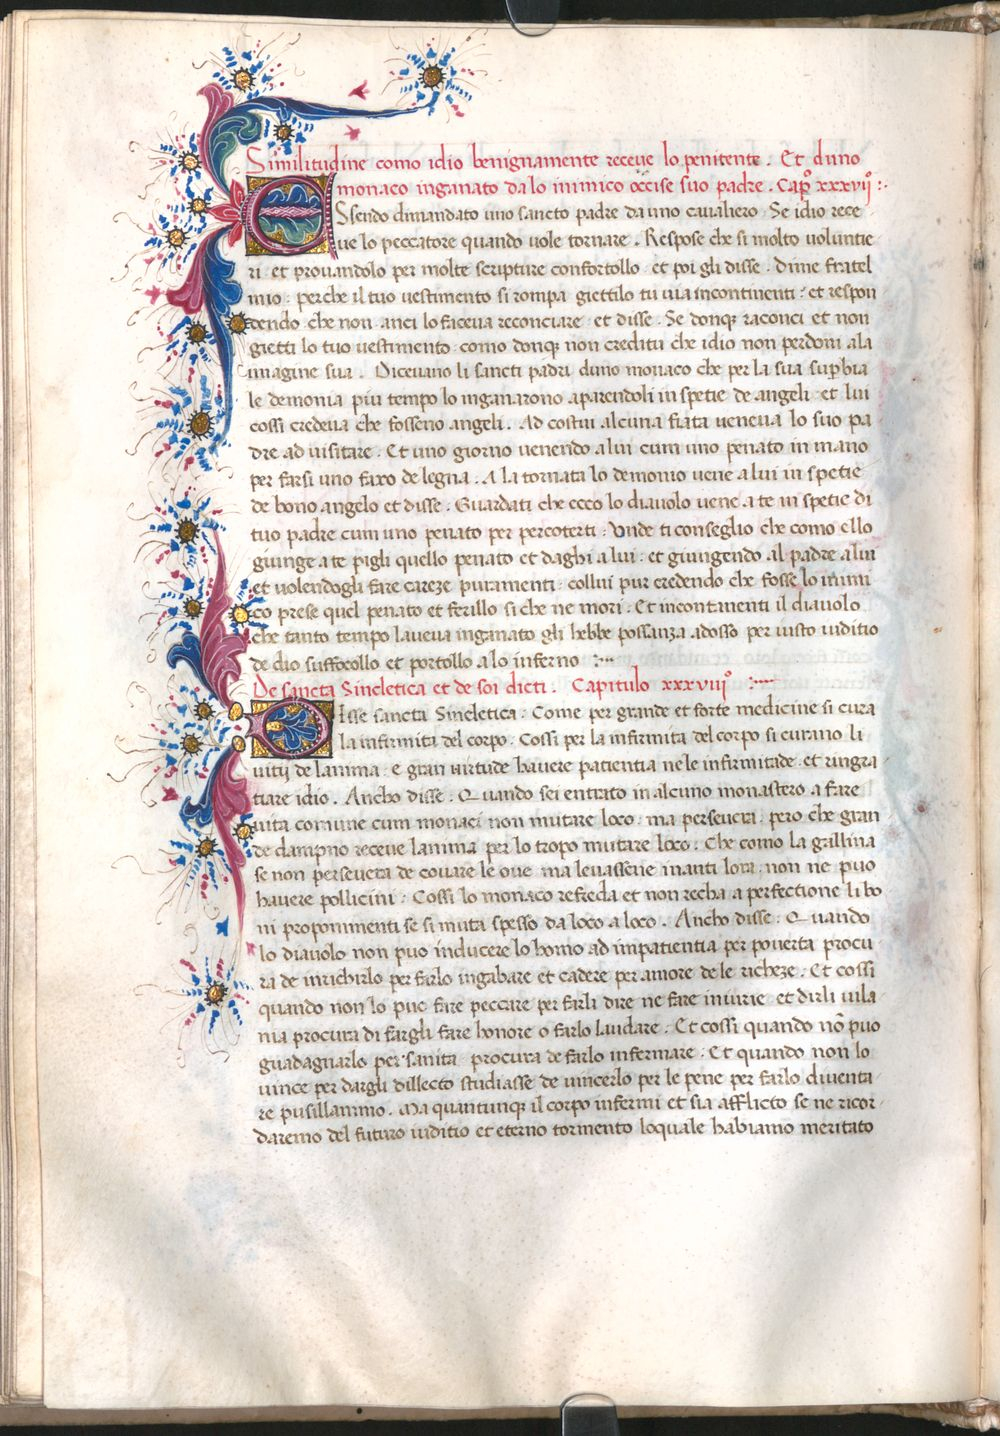 Similitudine como idio benignamente receue lo penitente . Et duno
monaco inganato da lo inimico occise suo padre . Capº xxxvijº :·
ESsendo dimandato uno sancto padre da uno caualiero · Se idio rece
ue lo peccatore quando uole tornare . Respose che si molto uoluntie
ri · et prouandolo per molte scripture confortollo · et poi gli disse · dime fratel
mio : perche il tuo uestimento si rompa giettilo tu uia incontinenti : et respon
dendo che non anci lo faceua reconciare · et disse · Se donqꝫ raconci et non
gietti lo tuo uestimento · como donqꝫ non creditu che idio non perdoni ala
imagine sua . Diceuano li sancti padri duno monaco che per la sua suꝑbia
le demonia piu tempo lo inganarono aparendoli in spetie de angeli · et lui
cossi credeua che fosseno angeli . Ad costui alcuna fiata ueneua lo suo pa
dre ad uisitare . Et uno giorno uenendo alui cum uno penato in mano
per farsi uno faxo de legna . A la tornata lo demonio uene a lui in spetie
de bono angelo et disse . Guardati che ecco lo diauolo uene a te in spetie di
tuo padre cum uno penato per percoterti : Unde ti conseglio che como ello
giunge a te pigli quello penato et daghi a lui : et giungendo il padre a lui
et uolendogli fare careze puramenti : collui pur credendo che fosse lo inimi
co prese quel penato et ferillo si che ne mori . Et incontinenti il diauolo
che tanto tempo laueua inganato gli hebbe possanza adosso per iusto iuditio
de dio suffocollo et portollo a lo inferno :~
De sancta Sincletica et de soi dicti . Capitulo xxxviiiº :~
DIsse sancta Sincletica : Come per grande et forte medicine si cura
la infirmita del corpo . Cossi per la infirmita del corpo si curano li
uitij de lanima · e gran uirtude hauere patientia nele infirmitade · et ringra
tiare idio . Ancho disse . Quando sei entrato in alcuno monastero a fare
uita comune cum monaci non mutare loco · ma perseuera : pero che gran
de dampno receue lanima per lo tropo mutare loco : Che como la gallina
se non perseuera de couare le oue ma leuassene inanti lora · non ne puo
hauere pollicini : Cossi lo monaco refreda et non recha a perfectione li bo
ni proponimenti se si muta spesso da loco a loco . Ancho disse : Quando
lo diauolo non puo inducere lo homo ad impatientia per pouerta procu
ra de inrichirlo per farlo ingabare et cadere per amore de le richeze . Et cossi
quando non lo puo fare peccare per farli dire ne fare iniurie · et dirli uila
nia procura di fargli fare honore o farlo laudare . Et cossi quando nō puo
guadagnarlo per sanita procura de farlo infermare . Et quando non lo
uince per dargli dillecto studiasse de uincerlo per le pene per farlo diuenta
re pusillanimo . Ma quantunqꝫ il corpo infermi et sia afflicto se ne ricor
daremo del futuro iuditio et eterno tormento loquale habiamo meritato